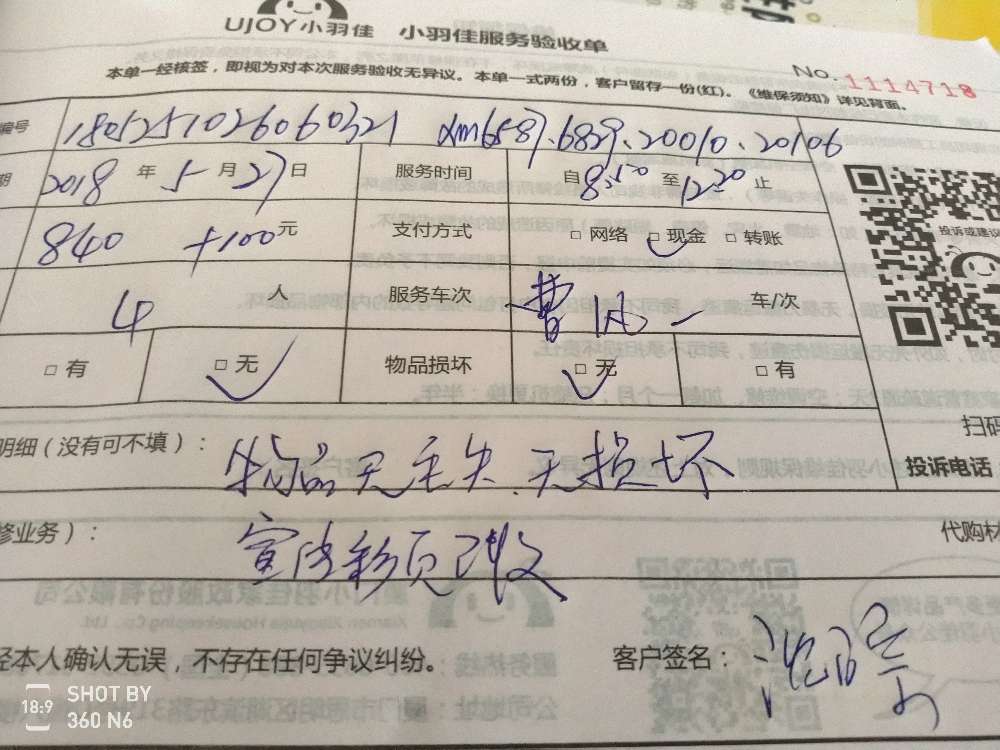 UJOY小羽佳 小羽佳服务验收单
No.1114718
本单一经核签，即视为对本次服务验收无异议。本单一式两份，客户留存一份(红)。《维保须知》详见背面。
编号 1805251026060321 xm6587.6829.20010.20106
期 2018 年 5 月 27 日 服务时间 自 8:50 至 12:20 止
840 +100 元 支付方式 □ 网络 □ 现金 □ 转账
投诉或建议
4 人 服务车次 一 车/次
□ 有 □ 无 物品损坏 □ 无 □ 有
扫码
明细（没有可不填）： 物品无丢失、无损坏
投诉电话
修业务）： 宣传彩页已收
代购材
经本人确认无误，不存在任何争议纠纷。 客户签名：
18:9 SHOT BY
360 N6